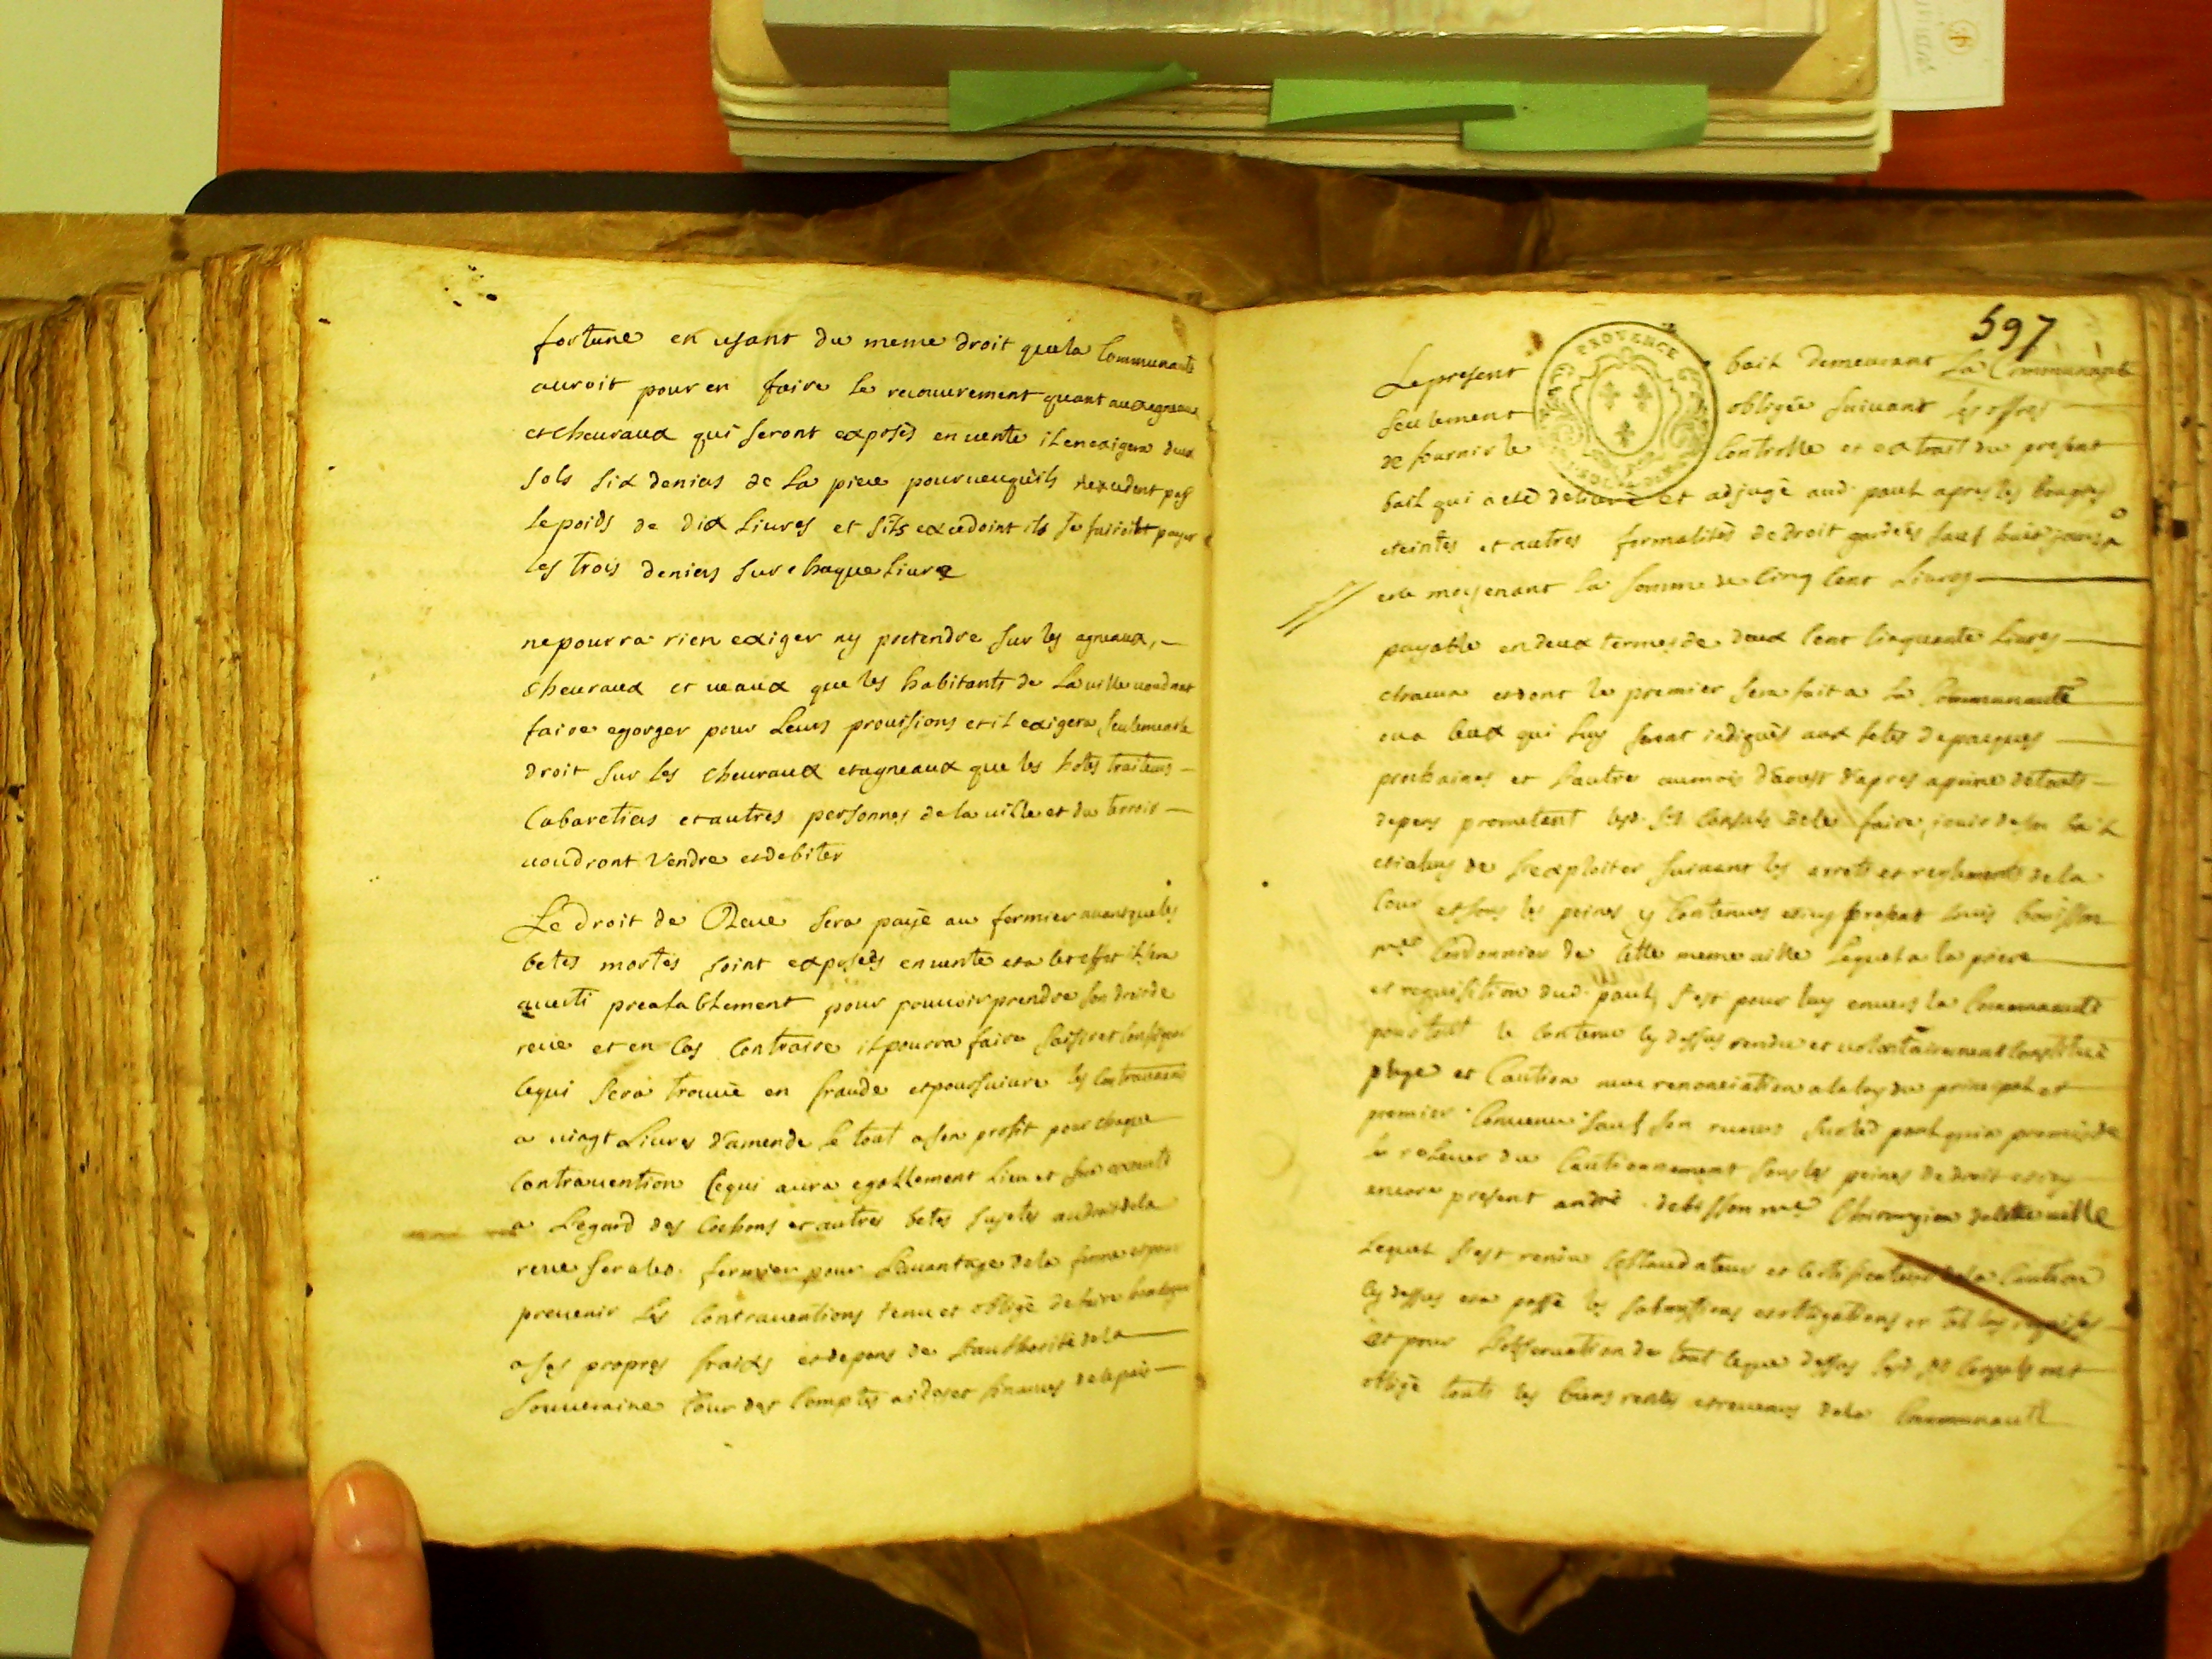 fortune en usant du meme droit que la Communauté
auroit pour en faire le recouurement quant aux agneaux
et cheuraux qui seront exposés en uente il en exigera deux
sols six deniers de la piece pourueuqu'ils nexcedent pas
le poids de dix liures et sils excedoint ils se fairoint payer
les trois deniers sur chaque liure
ne pourra rien exiger ny pretendre sur les agneaux,
cheuraux et ueaux que les habitants de la uille uoudront
faire egorger pour leurs prouisions et il exigera seulement le
droit sur les cheuraux et agneaux que les hotes traiteurs
Cabaretiers et autres personnes de la uille et du terroir
uoudront Vendre et debiter
Le droit de Reue sera payé au fermier auant que les
betes mortes soint exposées en uente et a cet effet il sera
auerti prealablement pour pouuoir prendre son droit de
reue et en cas contraire il pourra faire saisir et confisquer
ce qui sera trouué en fraude et poursuiure les contreuenants
a uingt liures d'amende le tout a son profit pour chaque
Contrauention ce qui aura egallement lieu et sera executé
a legard des Cochons et autres betes sujetes au droit de la
reue sera led. fermier pour lauantage de la ferme et pour
preuenir les contrauentions tenu et obligé de faire
a ses propres fraix et depens de lauthorité de la
Souueraine Cour des Comptes aides et finances de ce pais
597
PROVENCE
Le present bail demeurant la Communauté
seulement obligée suiuant les offres
de fournir le Controlle et extrait du present
bail qui a eté deliuré et adjugé aud. paul apres les bougies
eteintes et autres formalités de droit gardées sauf huit jours
et ce moyenant la somme de Cinq Cent Liures
payable en deux termes de deux Cent Cinquante Liures
chacun et dont le premier sera fait a la Communauté
ou a ceux qui luy seront indiqués aux fetes de paques
prochaines et lautre au mois d'aoust d'apres a peine de touts
depens prometent lesd. Srs Consuls de le faire jouir de son bail
et a luy de l'exploiter suiuant les arrets et reglements de la
Cour et sous les peines y Contenues et icy present Louis
me Cordonnier de Cette meme uille Lequel a la priere
et requisition dud. paul s'est pour luy enuers la Communauté
pour tout le Contenu cy dessus rendu et uolontairement Constitué
plege et Caution auec renonciation a la loy du principal et
premier Conuenu sauf son recours sur led paul qui a promis de
le releuer du Cautionnement sous les peines de droit et icy
encore present andré debisson me Chirurgien de cette uille
Lequel s'est rendu Collaudateur et Certificateur de la Caution
cy dessus et a passé les submissions et obligations en tel cas requises
Et pour l'obseruation de tout ce que dessus lesd. Srs Consuls ont
obligé touts les biens rentes et reuenus de la Communauté